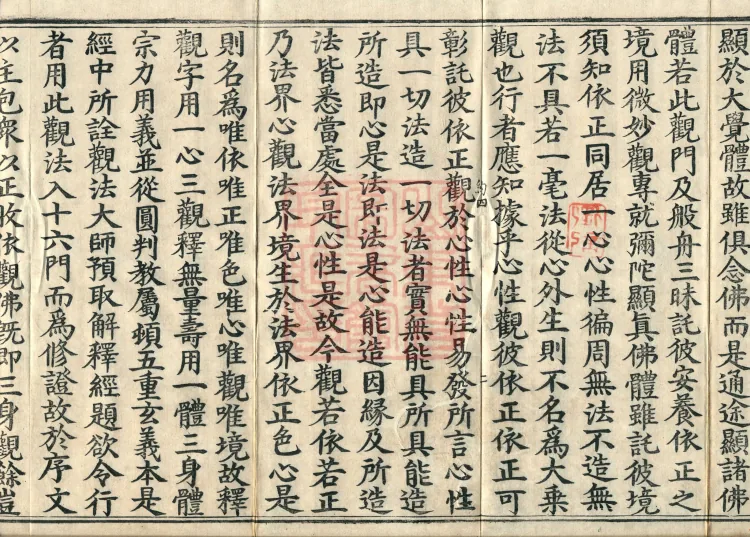 顯於大覺體故雖俱念佛而是通途顯諸佛
體若此觀門及般舟三昧託彼安養依正之
境用微妙觀專就彌陀顯眞佛體雖託彼境
須知依正同居一心心性徧周無法不造無
法不具若一毫法從心外生則不名爲大乘
觀也行者應知據乎心性觀彼依正依正可
彰託彼依正觀於心性心性易發所言心性
具一切法造一切法者實無能具所具能造
所造即心是法即法是心能造因緣及所造
法皆悉當處全是心性是故今觀若依若正
乃法界心觀法界境生於法界依正色心是
則名爲唯依唯正唯色唯心唯觀唯境故釋
觀字用一心三觀釋無量壽用一體三身體
宗力用義並從圓判教屬頓五重玄義本是
經中所詮觀法大師預取解釋經題欲令行
者用此觀法入十六門而爲修證故於序文
以主包衆以正收依觀佛旣即三身觀餘豈